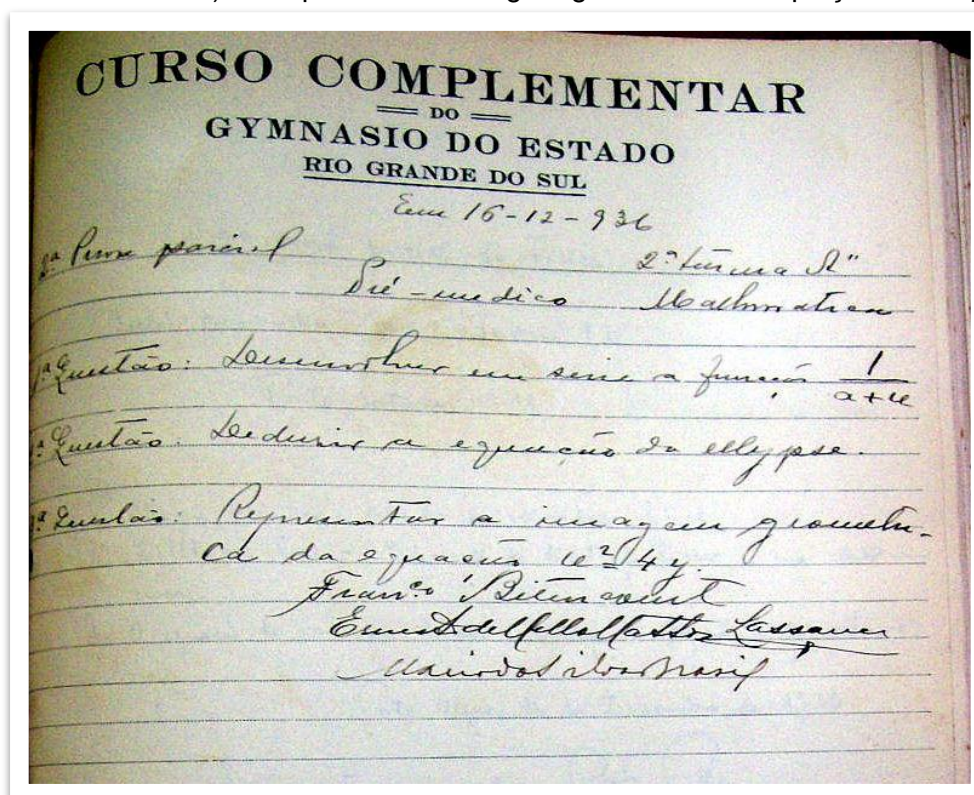 CURSO COMPLEMENTAR
DO
GYMNASIO DO ESTADO
RIO GRANDE DO SUL
Em 16-12-936
ª Prova parcial 2ª turma A"
Pré-medico Mathematica
ª Questão: Desenvolver em serie a função 1/a+x
ª Questão. Deduzir a equação da ellypse.
ª Questão: Representar a imagem geometri-
ca da equação x²=4y.
Franco Bitencourt
Ernesto de Mello Mattos Lassance
Mario da Silva Brasil